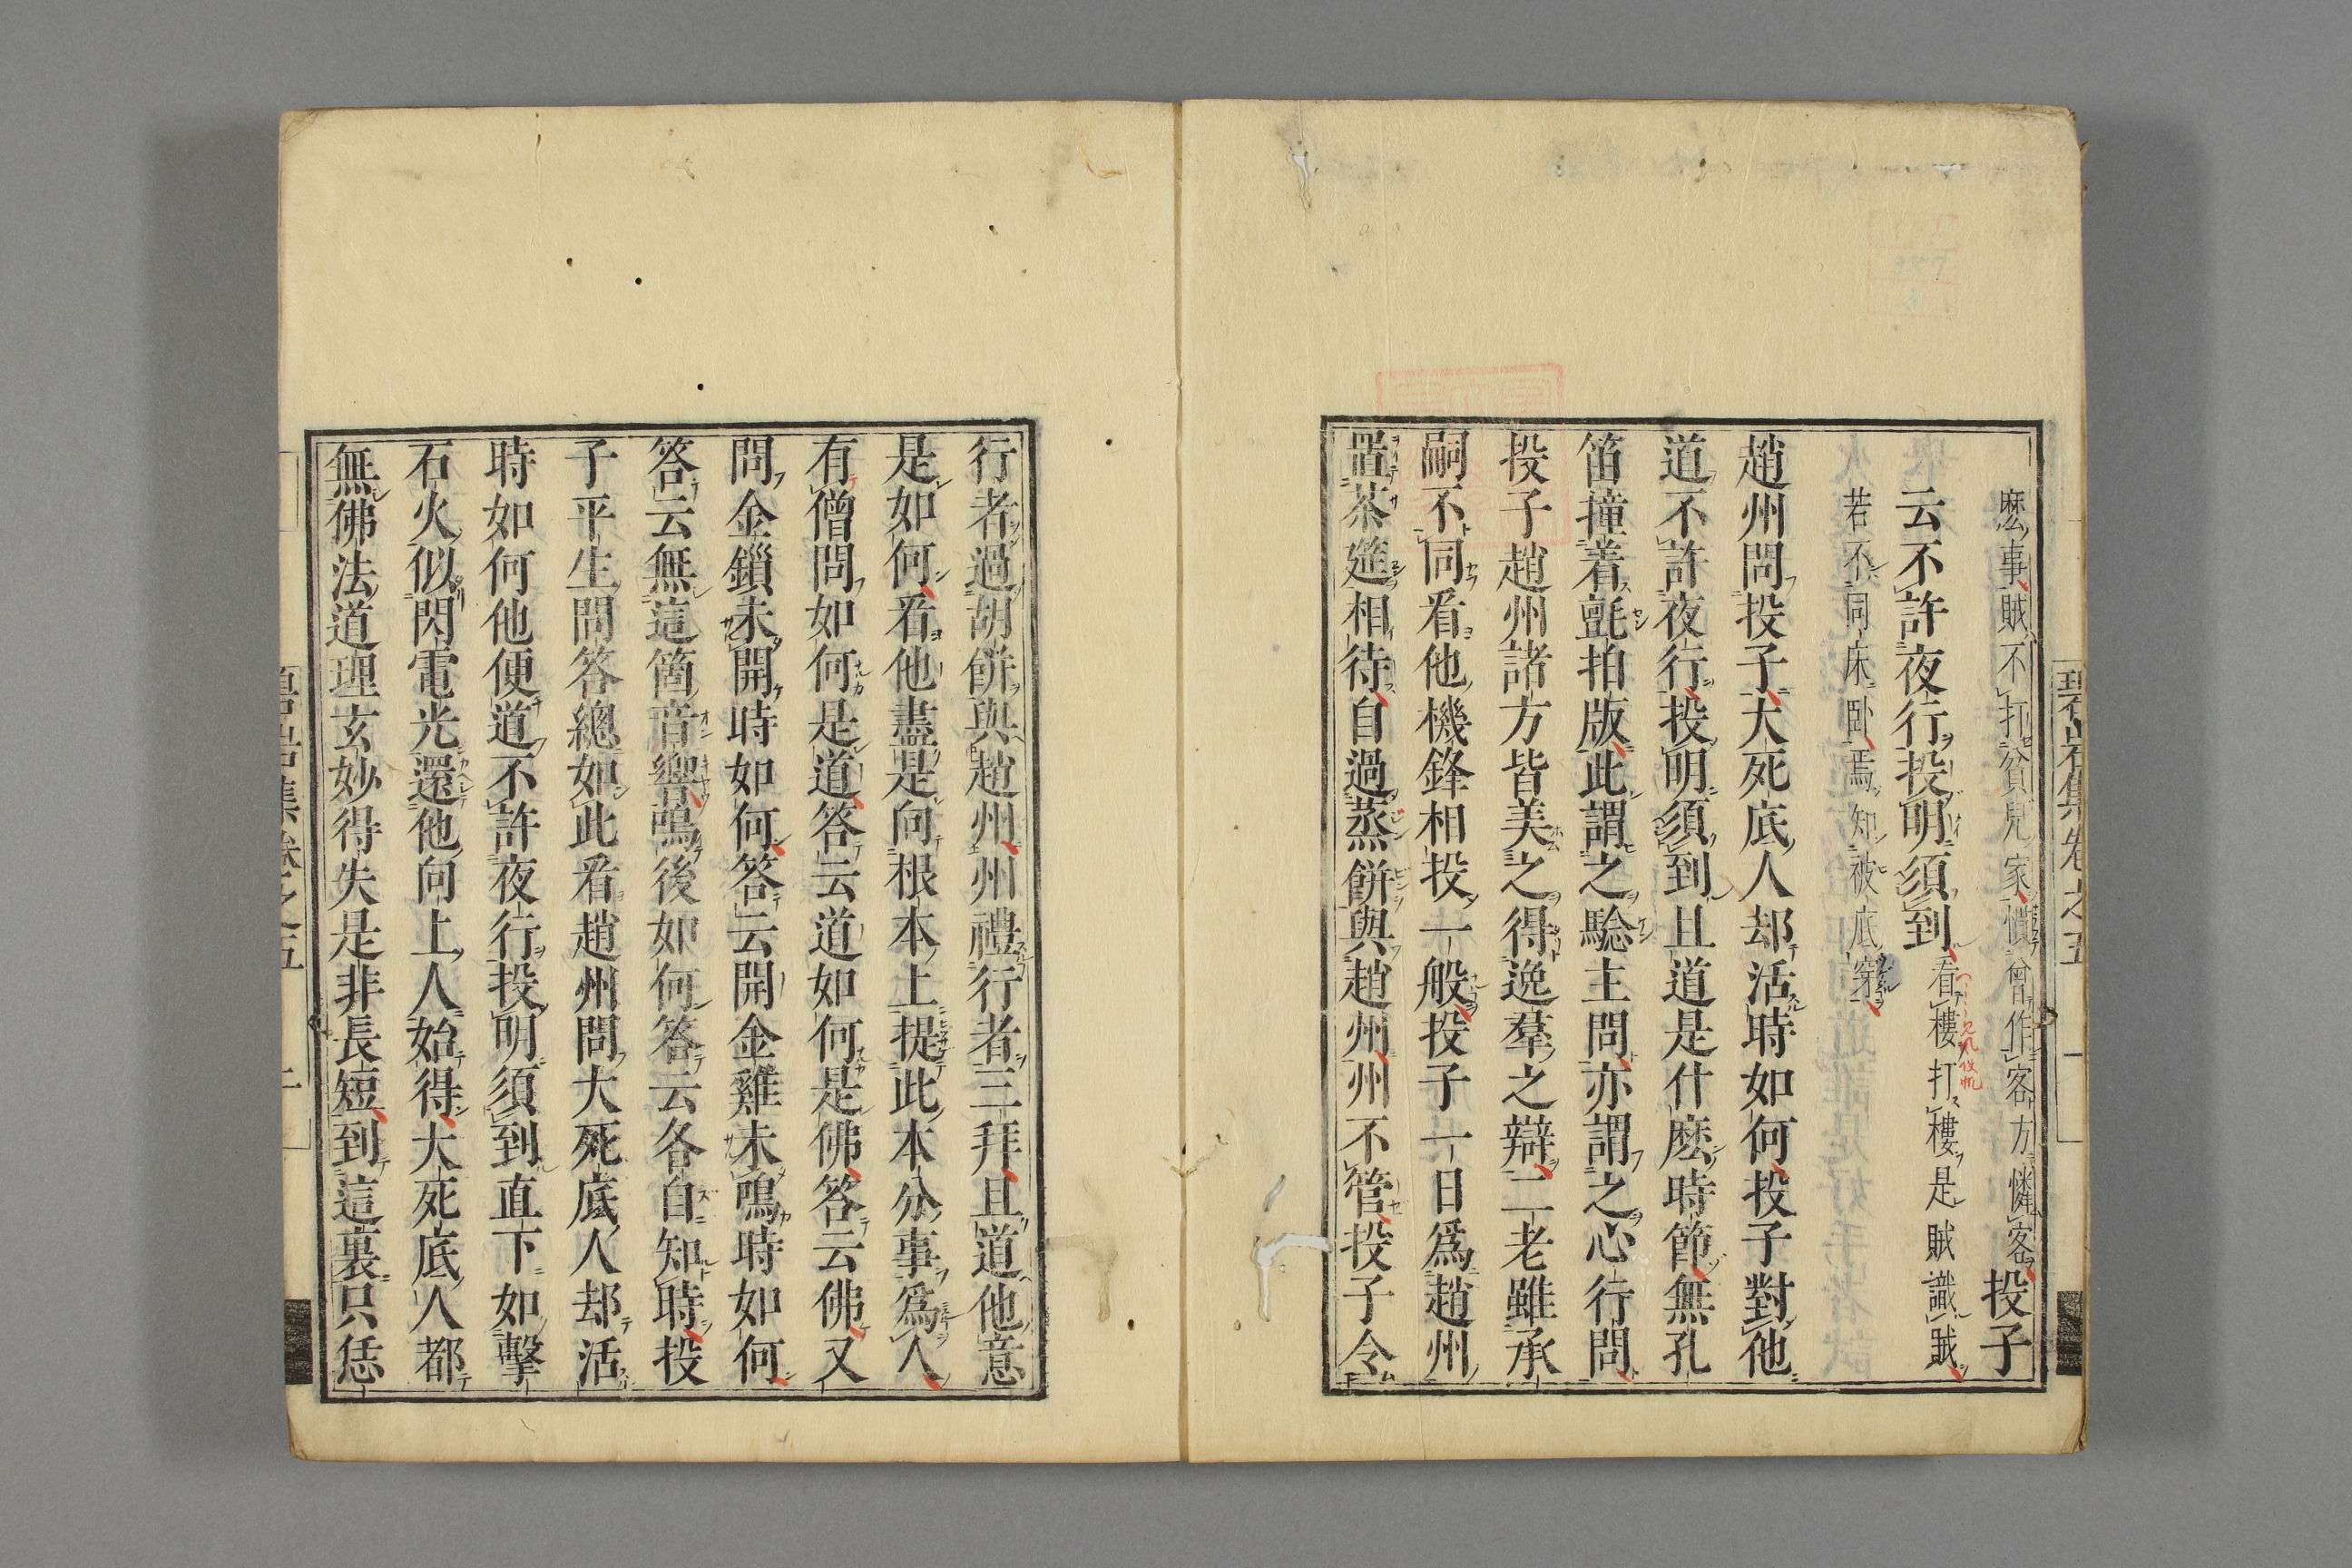 碧巖集卷之五
一
麽事賊不打貧兒家慣曾作客方憐客投子
云不許夜行投明須到看樓打樓是賊識賊
若不同床卧焉知被底穿
趙州問投子大死底人却活時如何投子對他
道不許夜行投明須到且道是什麽時節無孔
笛撞着氈拍版此謂之驗主問亦謂之心行問
投子趙州諸方皆美之得逸羣之辯二老雖承
嗣不同看他機鋒相投一般投子一日爲趙州
置茶筵相待自過蒸餅與趙州州不管投子令
行者過胡餅與趙州州禮行者三拜且道他意
是如何看他盡是向根本上提此本分事爲人
有僧問如何是道答云道如何是佛答云佛又
問金鎖未開時如何答云開金雞未鳴時如何
答云無這箇音響鳴後如何答云各自知時投
子平生問答總如此看趙州問大死底人却活
時如何他便道不許夜行投明須到直下如擊
石火似閃電光還他向上人始得大死底人都
無佛法道理玄妙得失是非長短到這裏只恁